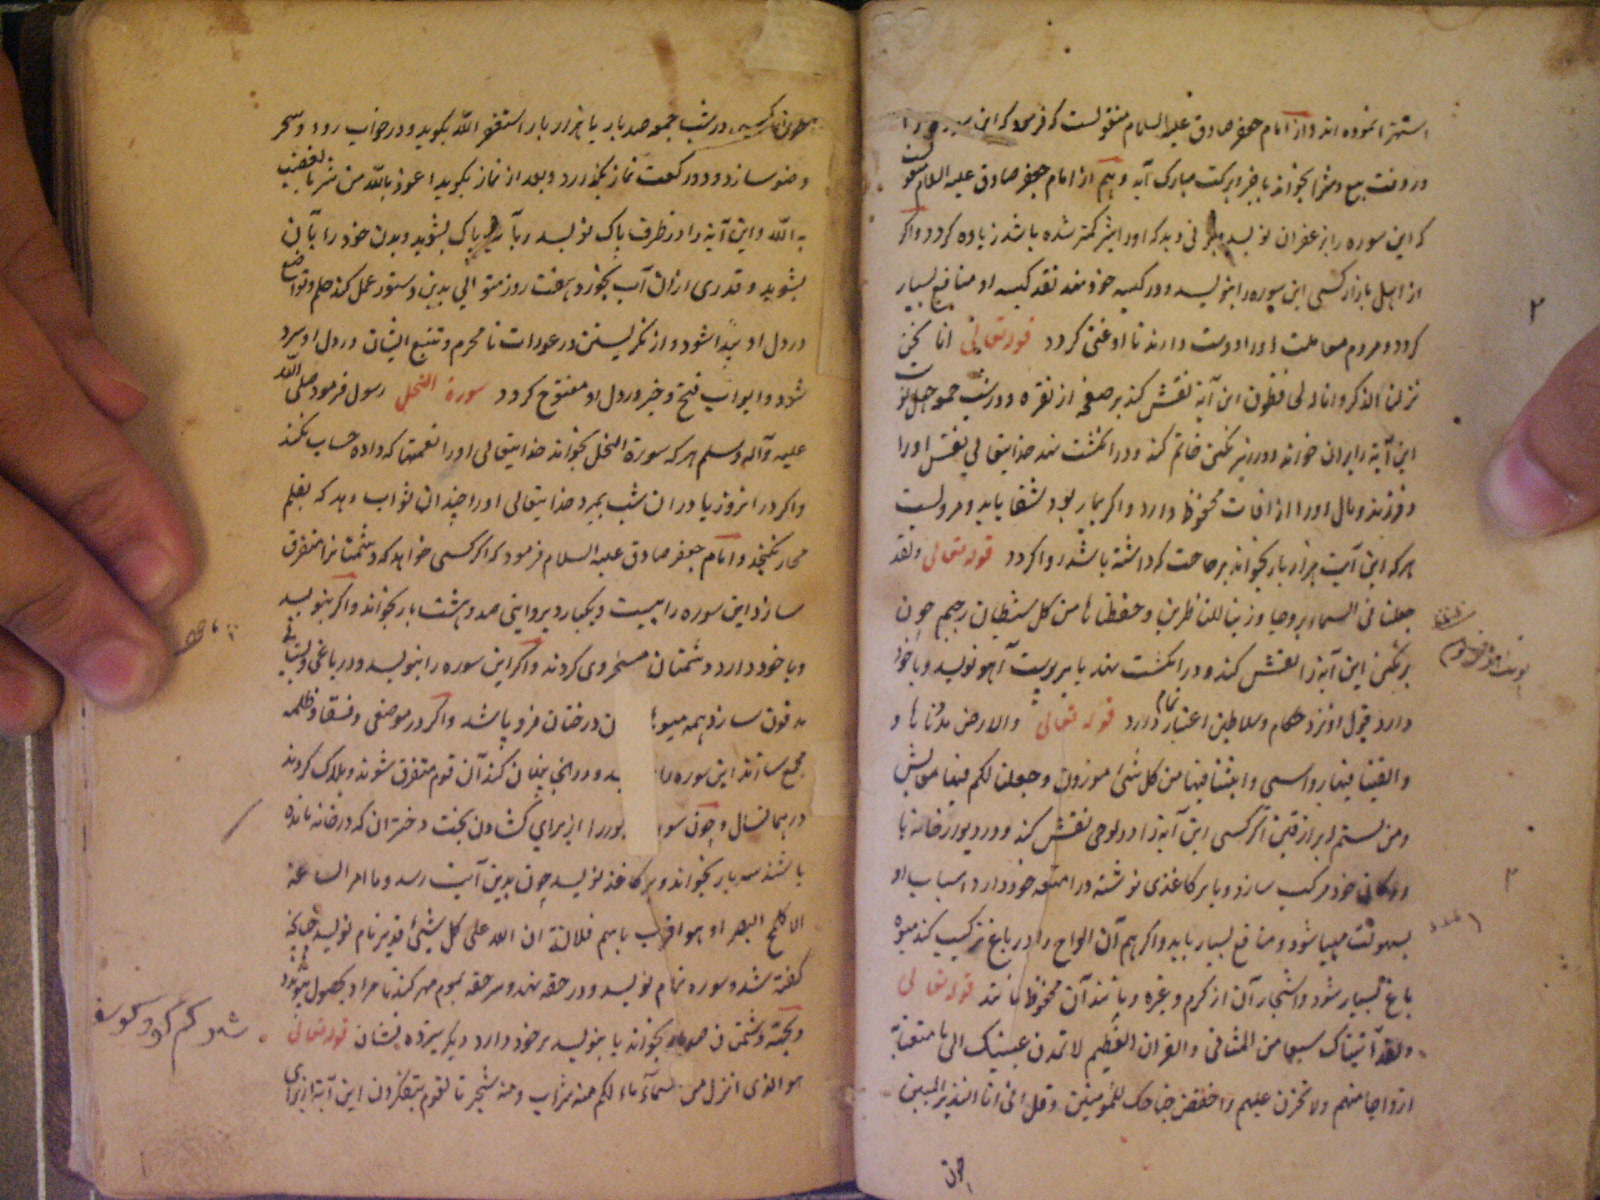 استهزا نموده اند و از امام جعفر صادق علیه السلام منقولست که فرمود که این سوره را
در وقت بیع و شرا بخواند با خیر و برکت مبارک آید و هم از امام جعفر صادق علیه السلام منقولست
که این سوره را بزعفران نویسد و بزنی دهد که او را شیر کمتر شده باشد زیاده کردد و اکر
از اهل بازار کسی این سوره را بنویسد و در کیسه خود نهد نقد کیسه او منافع بسیار
کردد و مردم معاملت او را دوست دارند تا او غنی کردد قوله تعالی انا نحن
نزلنا الذکر و انا له لحافظون این آیه نقش کند بر صفحه از نقره و در شب جمعه چهل نوبت
این آیة را بر ان خواند و در زیر نکین خاتم کند و در انکشت نهد خدایتعالی نفس او را
و فرزند و مال او را از افات محفوظ دارد و اکر بیمار بود شفا یابد و مرویست
هر که این آیت هزار بار بخواند هر حاجت که داشته باشد روا کردد قوله تعالی ولقد
جعلنا فی السماء بروجا و زیناها للناظرین و حفظناها من کل شیطان رجیم چون
بر نکین این آیه را نقش کند و در انکشت نهد یا بر پوست آهو نویسد و با خود
دارد قول او نزد حکام و سلاطین اعتبار تمام دارد قوله تعالی والارض مددناها و
والقینا فیها رواسی وانبتنا فیها من کل شیء موزون وجعلنا لکم فیها معایش
ومن لستم له برازقین اکر کسی این آیه را در لوحی نقش کند و در دیوار خانه یا
دوکان خود مرکب سازد و یا بر کاغذی نوشته در امتعه خود دارد اسباب او
بسهولت مهیا شود و منافع بسیار یابد و اکر هم آن الواح را در باغ ترکیب کند میوه
باغ بسیار شود و اشجار آن از کرم و غیره و باشد آن محفوظ ماند قوله تعالی
ولقد آتیناک سبعا من المثانی والقران العظیم لا تمدن عینیک الی ما متعنا به
ازواجا منهم ولا تحزن علیهم واخفض جناحک للمؤمنین وقل انی انا النذیر المبین
چون
در شب جمعه صد بار یا هزار بار استغفر الله بکوید و در خواب رود و سحر
وضو سازد و دو رکعت نماز بکذارد و بعد از نماز بکوید اعوذ بالله من شر
به الله و این آیة را در ظرف پاک نویسد و بآب پاک بشوید و بدن خود را بآن
بشوید و قدری از ان آب بخورد و هفت روز متوالی بدین دستور عمل کند حلم و تواضع
در دل او پیدا شود و از نکریستن در عورات نامحرم و تتبع ایشان در دل او سرد
شود و ابواب فتح و خیر در دل او مفتوح کردد سورة النحل رسول فرمود صلی الله
علیه وآله وسلم هر که سورة النحل بخواند خدایتعالی او را نعمتها که داده حساب نکند
و اکر در انروز یا در ان شب بمیرد خدایتعالی او را چندان ثواب دهد که بقلم
نکنجد و امام جعفر صادق علیه السلام فرمود که اکر کسی خواهد که دشمنانرا متفرق
سازد این سوره را بیست و یکبار و بروایتی صد و هشت بار بخواند و اکر بنویسد
و با خود دارد دشمنان مسخر وی کردند و اکر این سوره را بنویسد و در باغی و بستانی
مدفون سازد همه میوه ن درختان فرو پاشد و اکر در موضعی و فسقه و ظلمه
جمع سازند این سوره را ید و در انجا پنهان کند آن قوم متفرق شوند و هلاک کردند
در همانسال و چون سو از برای کشادن بخت دختران که در خانه مانده
باشند سه بار بخواند و بر کاغذ نویسد چون بدین آیت رسد وما امر الساعة
الا کلمح البصر او هو اقرب باسم فلانة ان الله علی کل شیئ قدیر نام نویسد چنانچه
کفته شد و سوره تمام نویسد و در حقه نهد و سر حقه بموم مهر کند تا مراد بحصول پیوندد
و بجهة دشمنان صد بار بخواند یا بنویسد بر خود دارد قوله تعالی
هو الذی انزل من السماء ماء لکم منه شراب ومنه شجر تا لقوم یتفکرون این آیة از برای